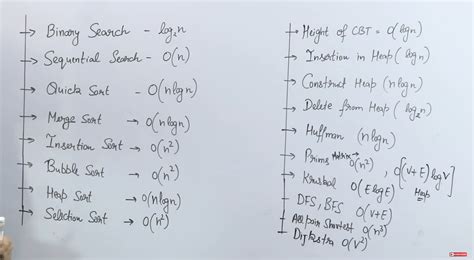 → Binary Search - log₂n
→ Sequential Search - O(n)
→ Quick Sort - O(nlogn)
→ Merge Sort → O(nlogn)
→ Insertion Sort → O(n²)
→ Bubble Sort → O(n²)
→ Heap Sort → O(nlogn)
→ Selection Sort → O(n²)
→ Height of CBT = O(logn)
→ Insertion in Heap (logn)
→ Construct Heap (nlogn)
→ Delete from Heap (log₂n)
→ Huffman (nlogn)
→ Prims Matrix → O(n²), O[(V+E)logV]
Heap
→ Kruskal O(ElogE)
→ DFS, BFS O(V+E)
→ All pair Shortest O(n³)
→ Dijkstra O(V²)